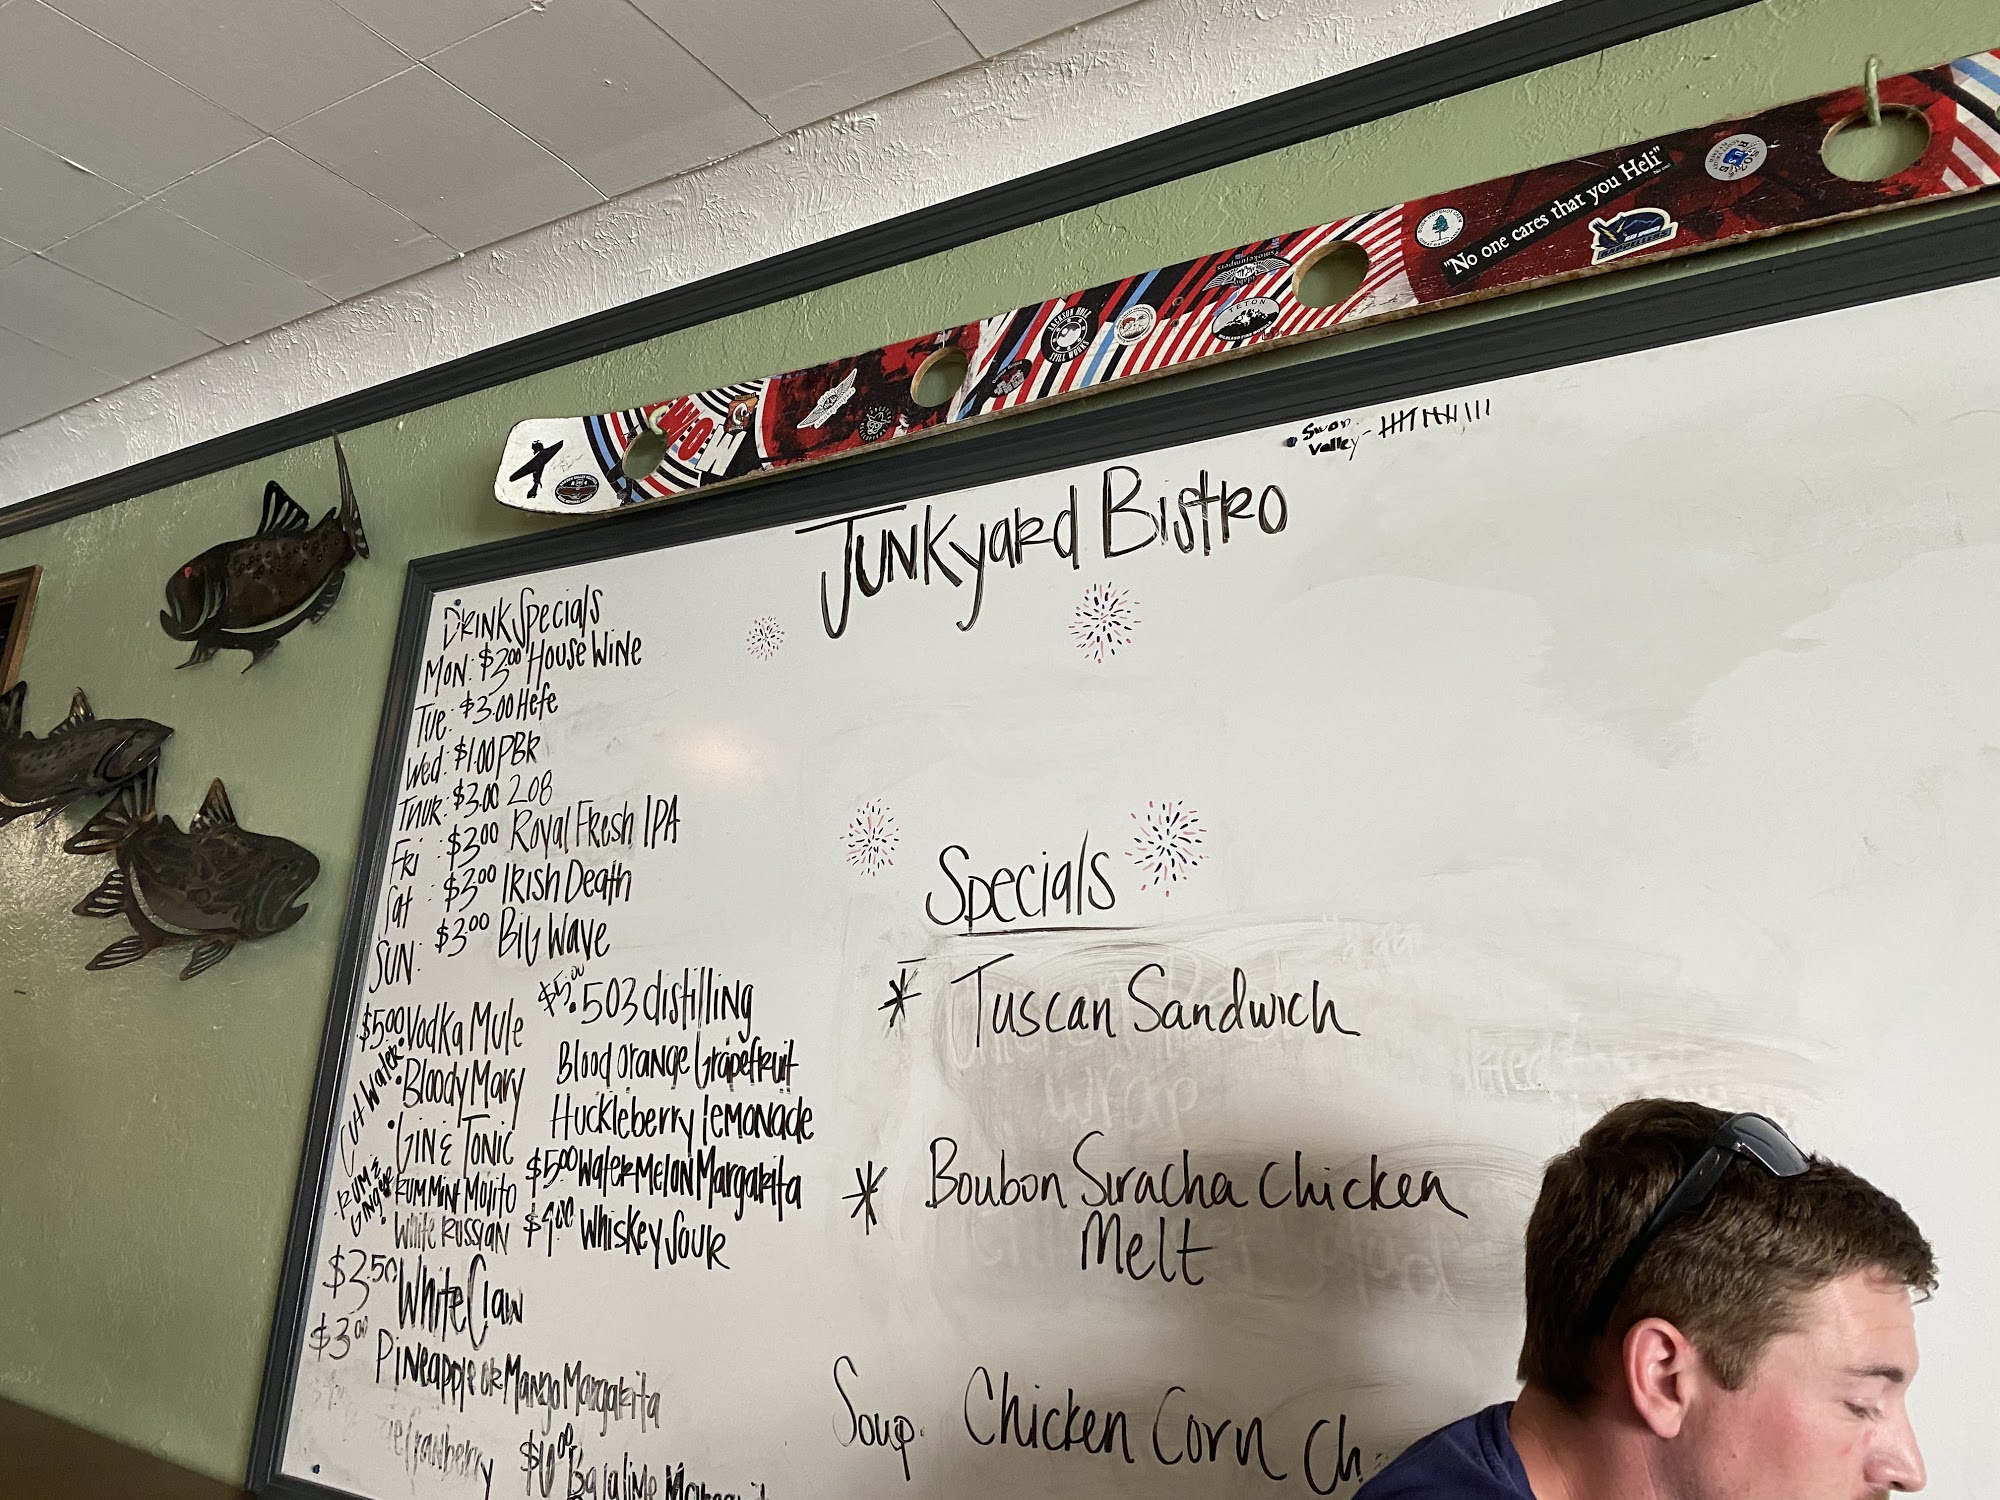 "No one cares that you Heli"
TETON
JACKSON HOLE
STILL WORKS
smokejumpers
WOW
Swan
Valley -
Junkyard Bistro
Drink Specials
Mon: $3.00 House Wine
Tue: $3.00 Hefe
Wed: $1.00 PBR
Thur: $3.00 208
Fri: $3.00 Royal Fresh IPA
Sat: $3.00 Irish Death
Sun: $3.00 Big Wave
$5.00 Vodka Mule
Cut Water
• Bloody Mary
• Gin & Tonic
• Rum Mint Mojito
Rum & Ginger
• White Russian
$5.00 • 503 distilling
Blood Orange Grapefruit
Huckleberry Lemonade
$5.00 Watermelon Margarita
$4.00 Whiskey Sour
$3.50 White Claw
$3.00 Pineapple or Mango Margarita
Cranberry $6.00
Specials
* Tuscan Sandwich
* Boubon Siracha Chicken
Melt
Soup. Chicken Corn Ch